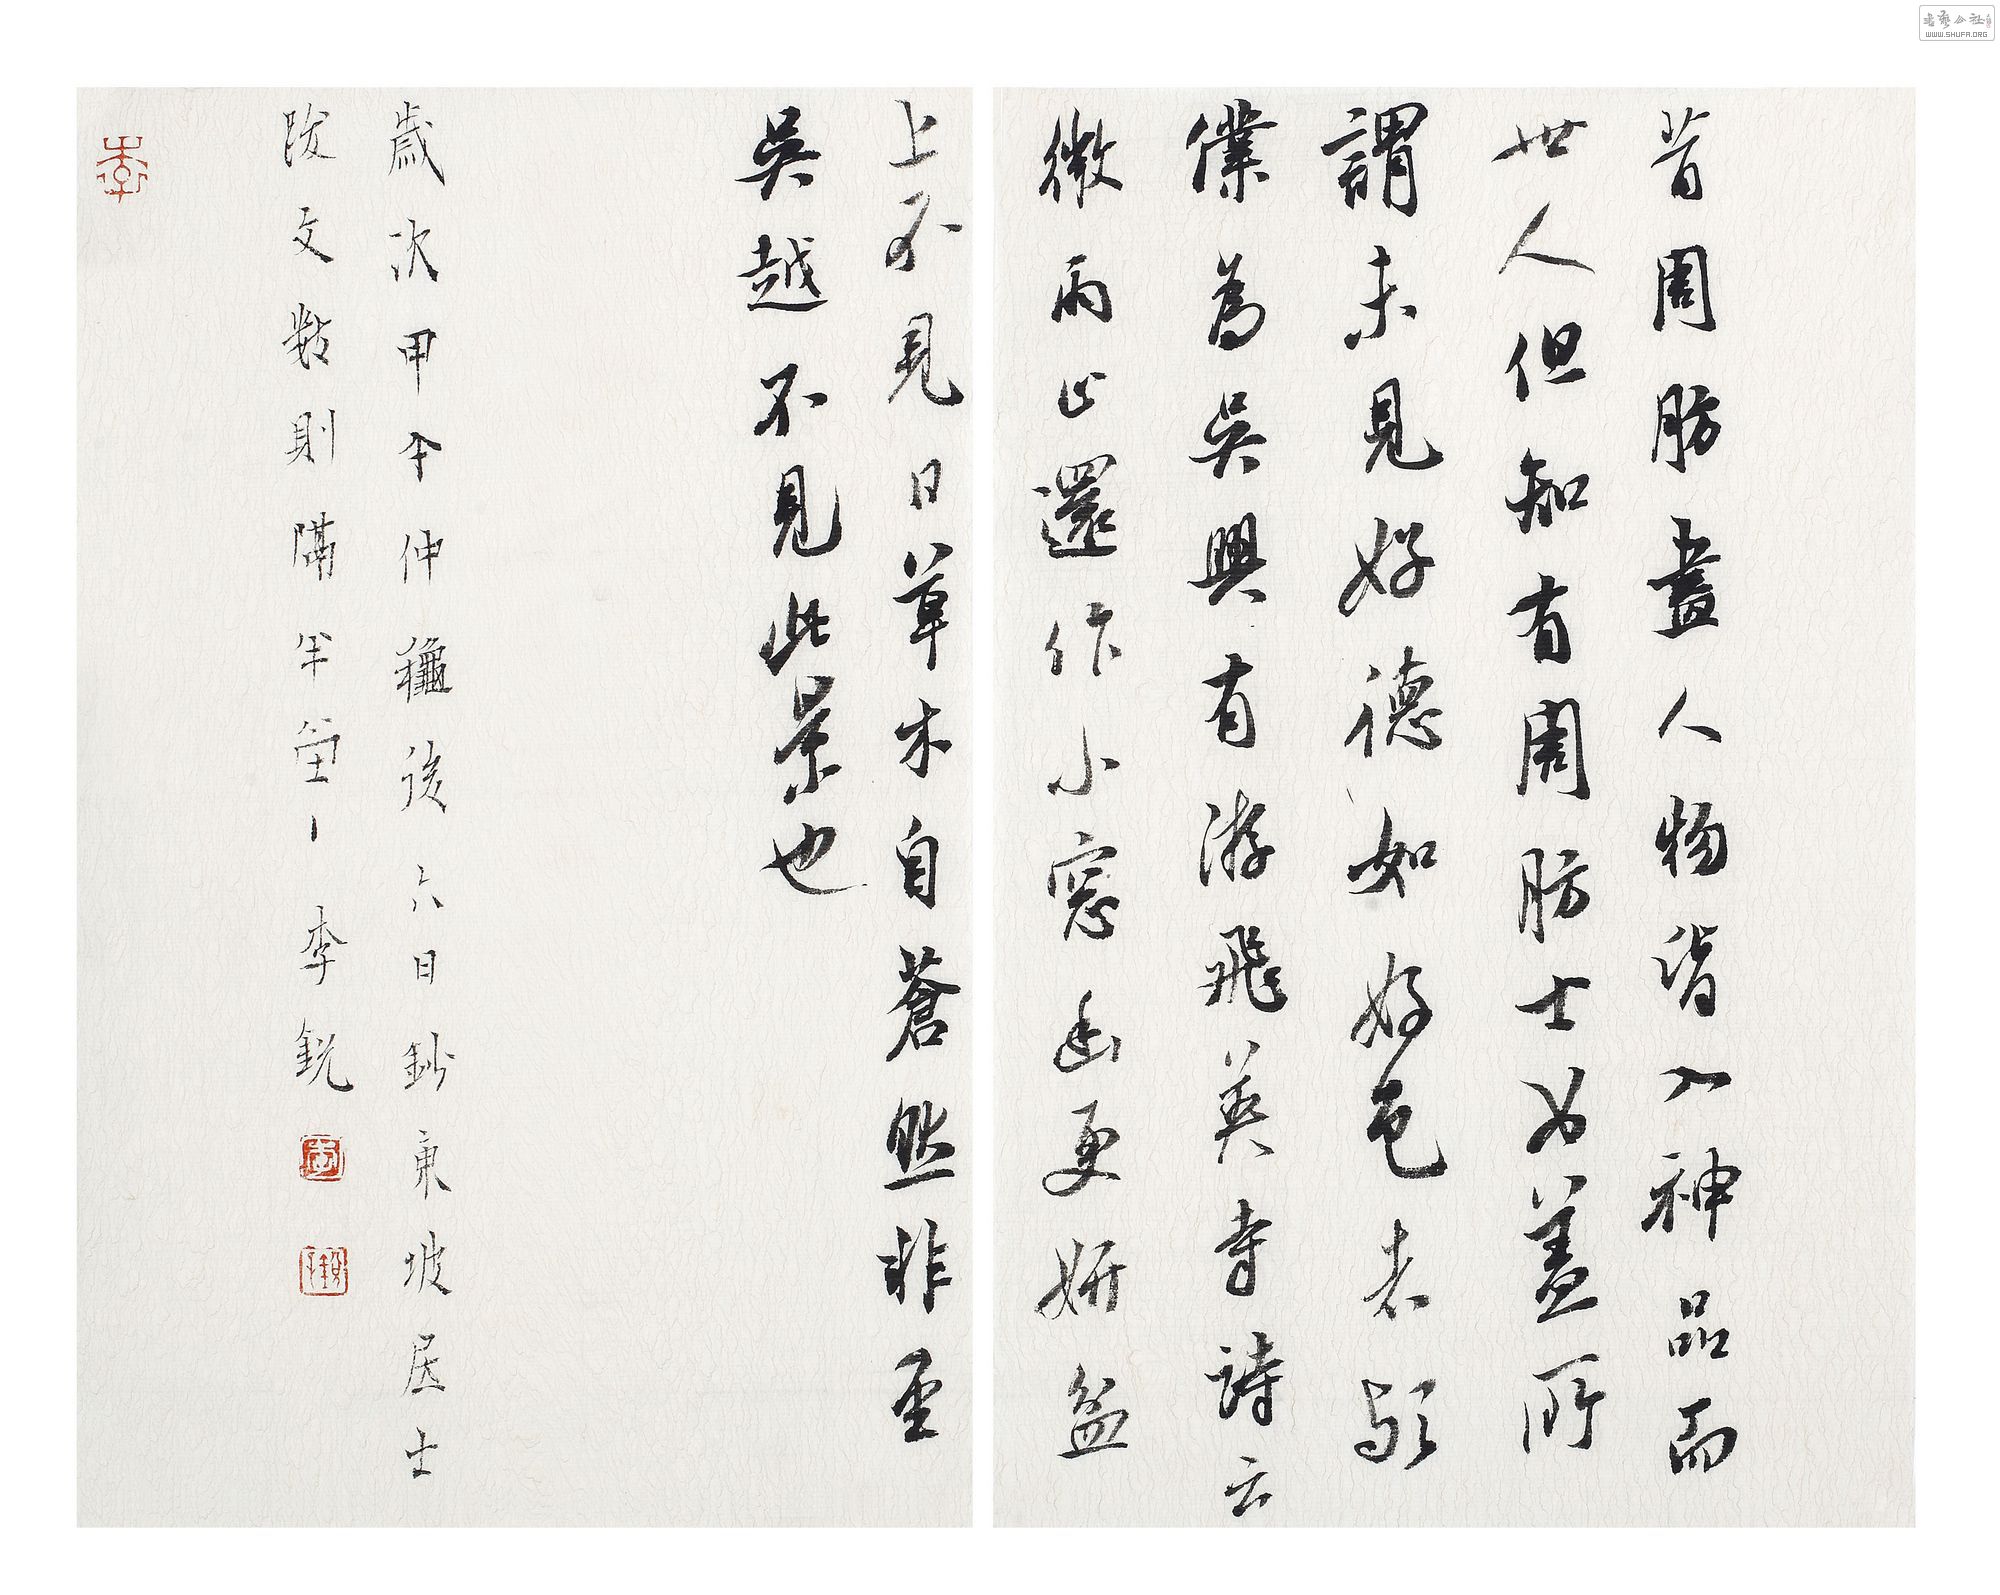 昔周昉畫人物皆入神品而
世人但知有周昉士女蓋所
謂未見好德如好色者歟
僕為吳興有游飛英寺詩云
微雨止還作小窓幽更妍盆
山不見日草木自蒼然非至
吳越不見此景也
歲次甲午仲龝後六日鈔東坡居士
跋文數則隔半
李銳
WWW.SHUFA.ORG